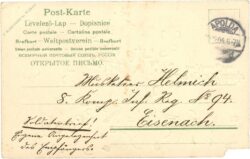 Post-Karte
Levelező-Lap — Dopisnice
Carte postale — Cartolina postale
Briefkort — Weltpostverein — Brefkort
Union postale universelle — Unione postale universale
ВСЕМІРНЫЙ ПОЧТОВЫЙ СОЮЗЪ РОССІЯ
ОТКРЫТОЕ ПИСЬМО.
APOLDA
Musketier Helmich
8. Komp. Inf. Reg. No 94.
Eisenach.
Soldatenbrief!
Eigene Angelegenheit
des Empfängers